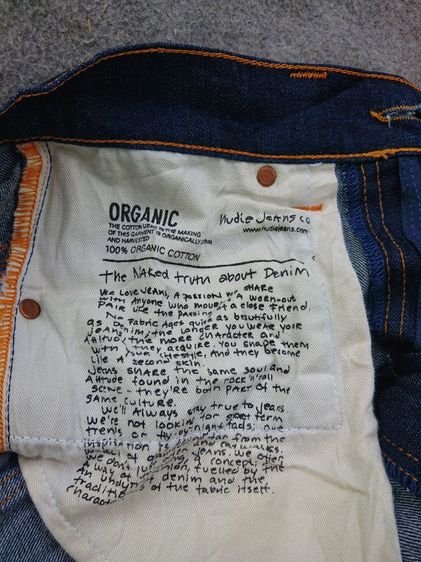 ORGANIC
THE COTTON USED IN THE MAKING
OF THIS GARMENT IS ORGANICALLY GROWN
AND HARVESTED
100% ORGANIC COTTON
nudie Jeans co
www.nudiejeans.com
The Naked truth about Denim
We love Jeans, A passion we share
with Anyone who mourns a worn-out
PAIR like the passing of a close friend.
No fabric Ages quite as beautifully
as Denim, the longer you wear your
Jeans the more character and
Attitude they acquire. You shape them
with your lifestyle, and they become
like a second skin.
Jeans share the same soul and
Attitude found in the rock'n'roll
scene - they're both part of the
same culture.
We'll Always stay true to Jeans
We're not looking for short term
trends or fly-by-night fads; our
inspiration is from the
catwalks.
Jeans. We
We don't a concept; then
A way of fuelled by the
denim and the
tradition
charact of the fabric itself.